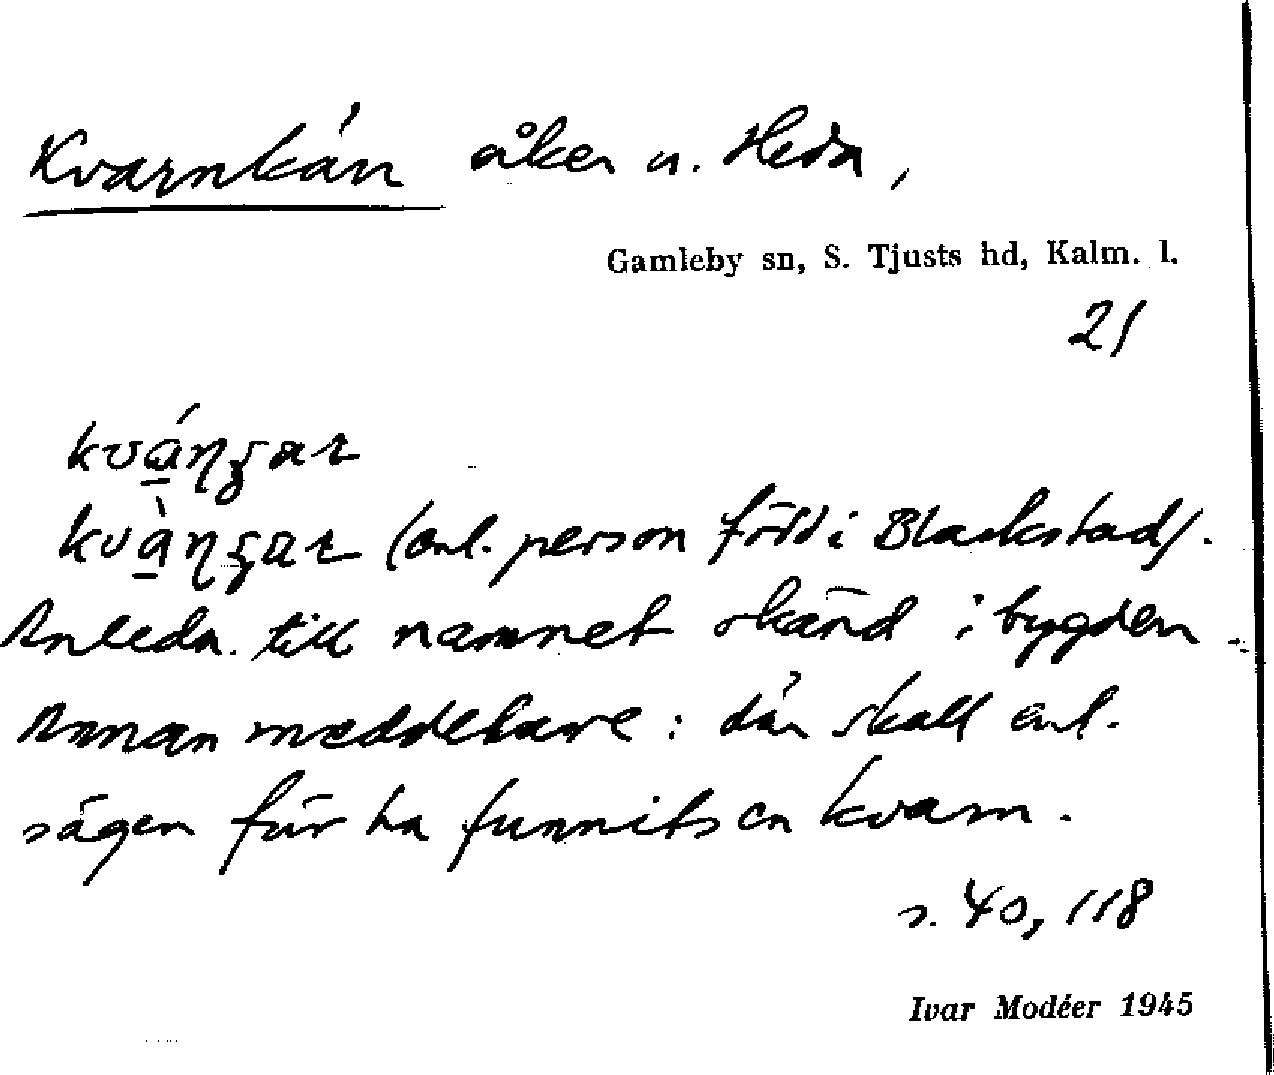 Kvarnkán åker u. Heda,
Gamleby sn, S. Tjusts hd, Kalm. l.
21
(enl. person född i Blackstad).
Anledn. till namnet okänd i bygden.
Annan meddelare: där skall enl.
sägen för ha funnits en kvarn.
s. 40, 118
Ivar Modéer 1945